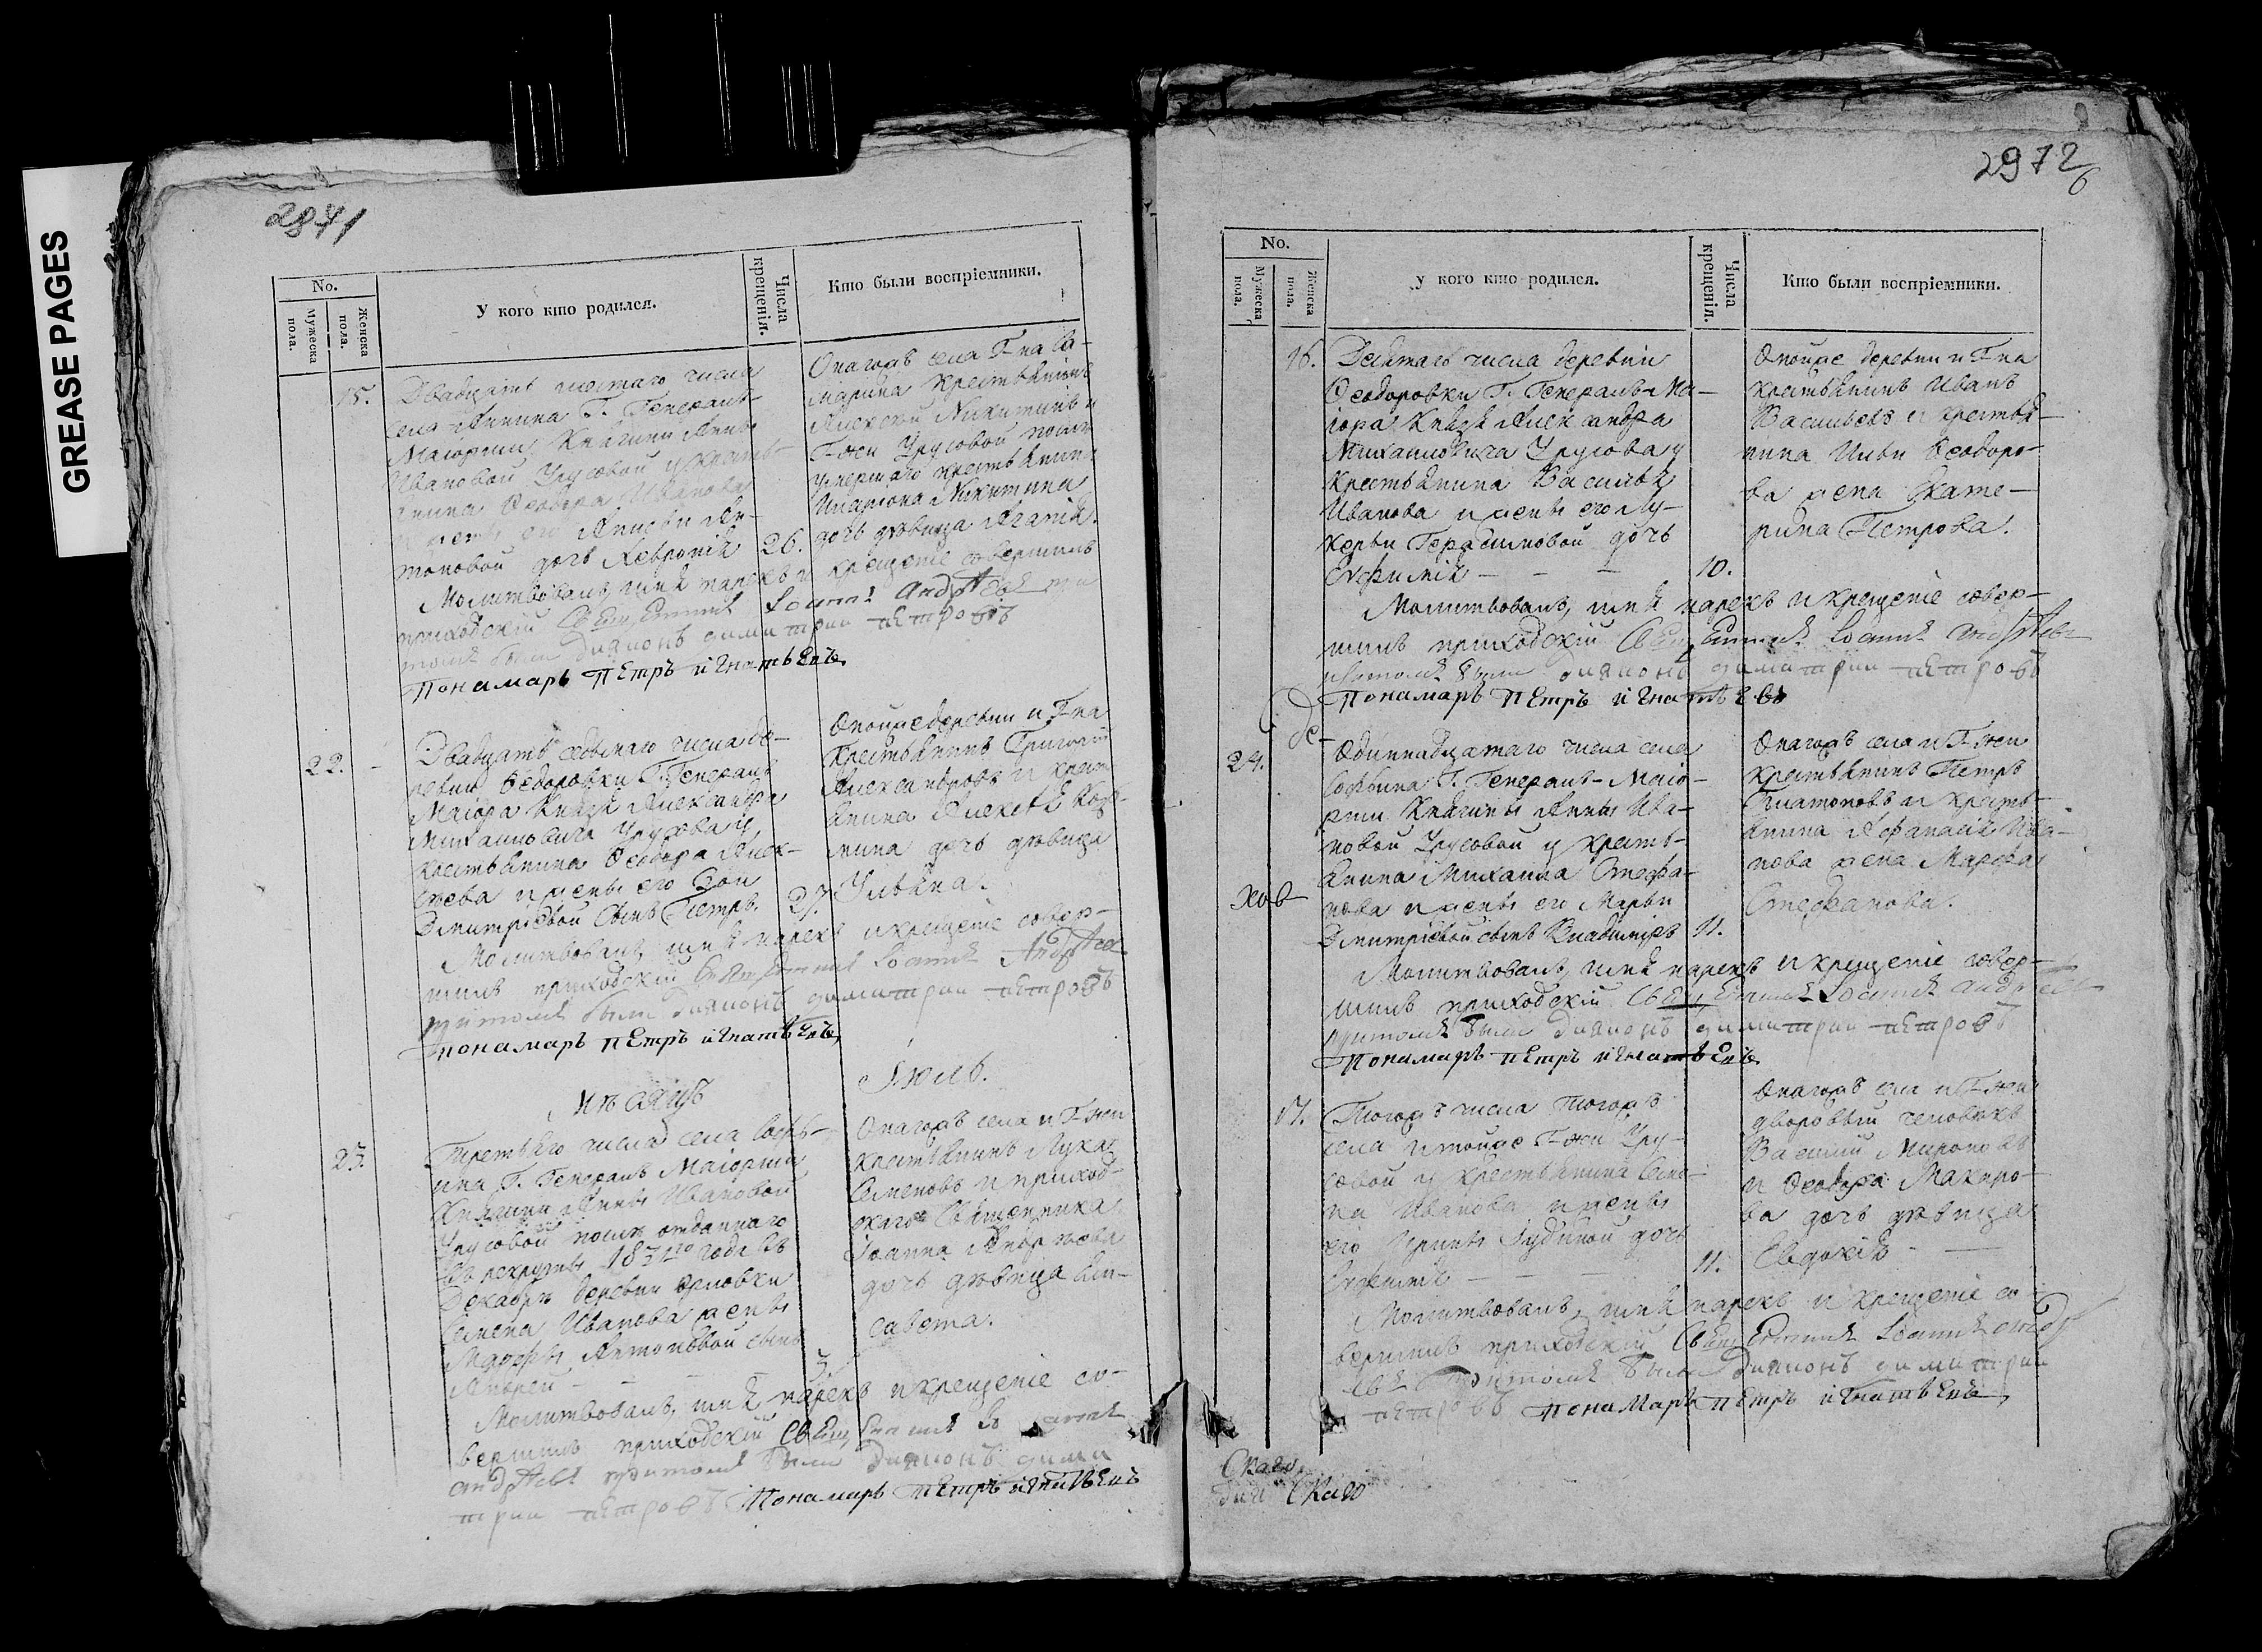 GREASE PAGES
2841
No.
Мужеска пола.
Женска пола.
У кого кто родился.
Числа крещенія.
Кто были воспріемники.
15.
Двадцать шестаго числа
села Г. Генералъ-
Маіорши Княгини Анны
Ивановой Урусовой у кресть-
янина Ѳеодора Иванова
и жены его Ан-
тоновой дочь Хевронія
26.
Онагожъ села Г-на
крестьянинъ
Алексѣй Никитинъ и
Г-жи Урусовой
умершаго крестьянина
Никитина
дочь дѣвица Агапія.
Молитвовалъ, имя нарекъ и крещеніе совершилъ
приходскій Священникъ Іоаннъ Андреевъ при
томъ были Діаконъ димитрій пЕтровъ
Пономарь пЕтръ игнатьЕвъ
22.
Двадцать седьмаго числа де-
ревни Ѳедоровки Г. Генералъ
Маіора Князя Александра
Михаиловича Урусова у
крестьянина Ѳеодора Алек-
сѣева и жены его Зои
Дмитріевой сынъ Петръ.
27.
Оноиже деревни и Г-на
крестьянинъ Григорій
Александровъ и кресть
янина Алексѣя
дочь дѣвица
Ульяна.
Молитвовалъ, имя нарекъ и крещеніе совер-
шилъ приходскій Священникъ Іоаннъ Андреевъ
притомъ были Діаконъ димитрій пЕтровъ
пономарь пЕтръ игнатьЕвъ
Мѣсяцъ
Іюль.
23.
Третьяго числа села Софь-
ина Г. Генералъ Маіорши
Княгини Анны Ивановой
Урусовой отданнаго
въ рекруты 1831го года въ
Декабрѣ деревни
Семена Иванова жены
Марфы Антоновой сынъ
Андрей
3
Онагожъ села и Г-жи
крестьянинъ Лука
Семеновъ и приход-
скаго Священника
Іоанна Андреева
дочь дѣвица Ели-
савета.
Молитвовалъ, имя нарекъ и крещеніе со-
вершилъ приходскій Священникъ Іоаннъ
андреевъ притомъ были Діаконъ дими
трій пЕтровъ Пономарь пЕтръ игнатьЕвъ
2972
6
No.
Мужеска пола.
Женска пола.
у кого кто родился.
Числа крещенія.
Кто были воспріемники.
16.
Десятаго числа деревни
Ѳеодоровки Г. Генералъ-Ма-
іора Князя Александра
Михаиловича Урусова у
крестьянина Василья
Иванова и жены его Лу-
керьи Герасимовой дочь
Евфимія
10.
Оноиже деревни и Г-на
крестьянинъ Иванъ
Васильевъ и крестья-
нина Ильи Ѳеодоро-
ва жена Екате-
рина Петрова.
Молитвовалъ, имя нарекъ и крещеніе совер-
шилъ приходскій Священникъ Іоаннъ Андреевъ
притомъ были Діаконъ димитрій пЕтровъ
Пономарь пЕтръ игнатьЕвъ
24.
Одиннадцатаго числа села
Софьина Г. Генералъ-Маіо-
рши Княгини Анны Ива-
новой Урусовой у кресть-
янина Михаила Стефа-
нова и жены его Марьи
Дмитріевой сынъ Владиміръ
11.
Онагожъ села и Г-жи
крестьянинъ Петръ
Платоновъ и кресть-
янина Афанасія Ива-
нова жена Марфа
Стефанова.
Молитвовалъ, имя нарекъ и крещеніе совер-
шилъ приходскій Священникъ Іоаннъ андреевъ
притомъ были Діаконъ димитрій пЕтровъ
Пономарь пЕтръ игнатьЕвъ
17.
Тогожъ числа тогожъ
села и тойже Г-жи Уру-
совой у крестьянина
Иванова и жены
его Ирины Іудиной дочь
Евфимія
11.
Онагожъ села и Г-жи
дворовый человѣкъ
Василій Мироновъ
и Ѳеодора Макаро-
ва дочь дѣвица
Евдокія
Молитвовалъ, имя нарекъ и крещеніе со-
вершилъ приходскій Священникъ Іоаннъ андре
евъ притомъ были Діаконъ димитрій
пЕтровъ пономарь пЕтръ игнатьЕвъ